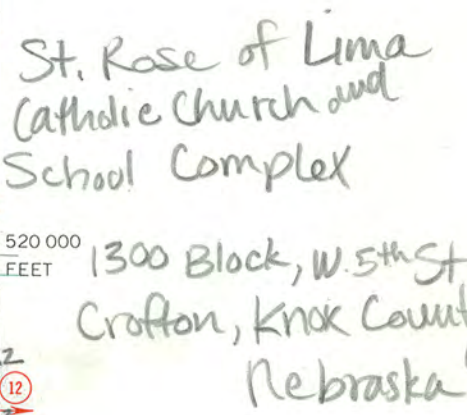 St. Rose of Lima
Catholic Church and
School Complex
520 000
FEET
1300 Block, W. 5th St
Crofton, Knox Count
Nebraska
12